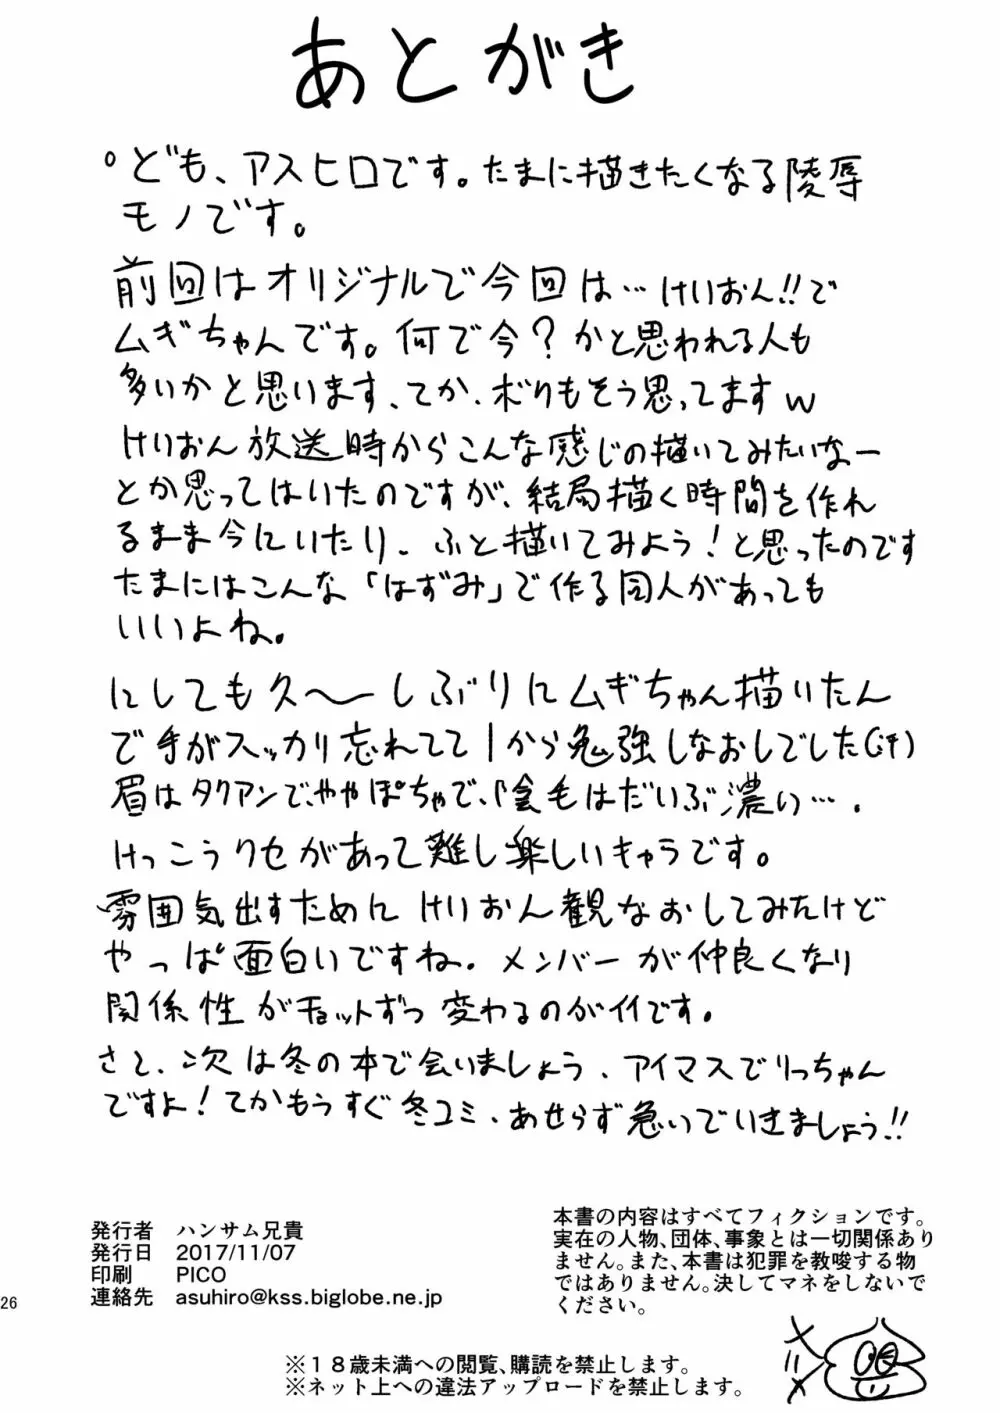 あとがき
°ども、アスヒロです。たまに描きたくなる陵辱
モノです。
前回はオリジナルで今回は…けいおん!!で
ムギちゃんです。何で今?かと思われる人も
多いかと思います、てか、ボクもそう思ってますw
けいおん放送時からこんな感じの描いてみたいなー
とか思ってはいたのですが、結局描く時間を作れ
るまま今にいたり、ふと描いてみよう!と思ったのです
たまにはこんな「はずみ」で作る同人があっても
いいよね。
にしても久〜しぶりにムギちゃん描いたん
で手がスッカリ忘れてて1から勉強しなおしでした(汗)
眉はタクアンで、
けっこうクセがあって難し楽しいキャラです。
雰囲気出すためにけいおん観なおしてみたけど
やっぱ面白いですね。メンバーが仲良くなり
関係性がチョットずつ変わるのがイイです。
さて、次は冬の本で会いましょう、アイマスでりっちゃん
ですよ!てかもうすぐ冬コミ、あせらず急いでいきましょう!!
発行者 ハンサム兄貴
発行日 2017/11/07
印刷 PICO
連絡先 asuhiro@kss.biglobe.ne.jp
本書の内容はすべてフィクションです。
実在の人物、団体、事象とは一切関係あり
ません。また、本書は犯罪を教唆する物
ではありません。決してマネをしないで
ください。
26
※18歳未満への閲覧、購読を禁止します。
※ネット上への違法アップロードを禁止します。